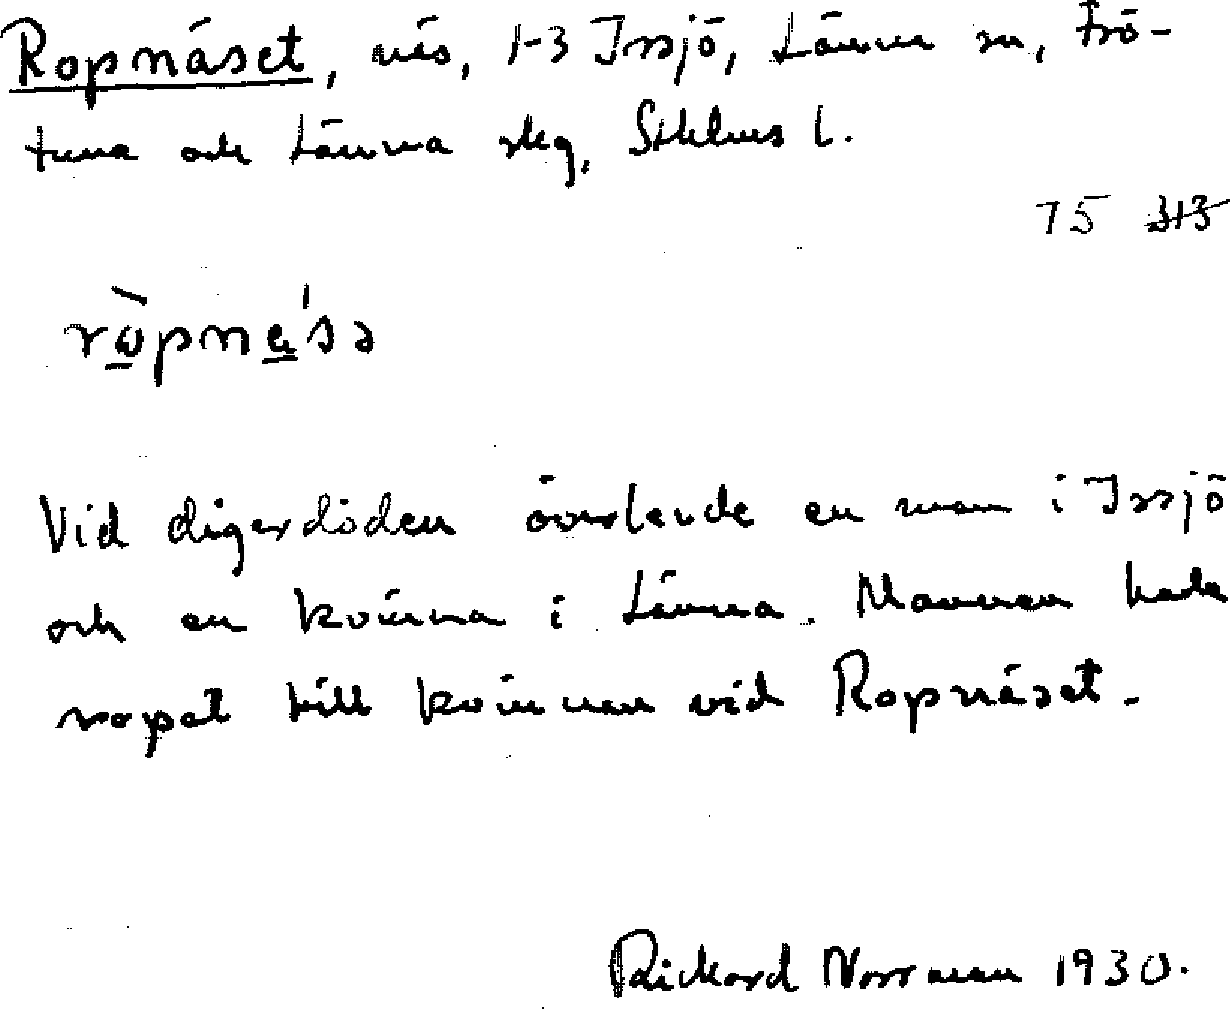 Ropnäset, näs, 1-3 Issjö, Länna sn, Frö-
tuna och Länna skg, Sthlms l.
75 313
ròpnäˈsə
Vid digerdöden överlevde en man i Issjö
och en kvinna i Länna. Mannen hade
ropat till kvinnan vid Ropnäset.
Rickard Norrman 1930.